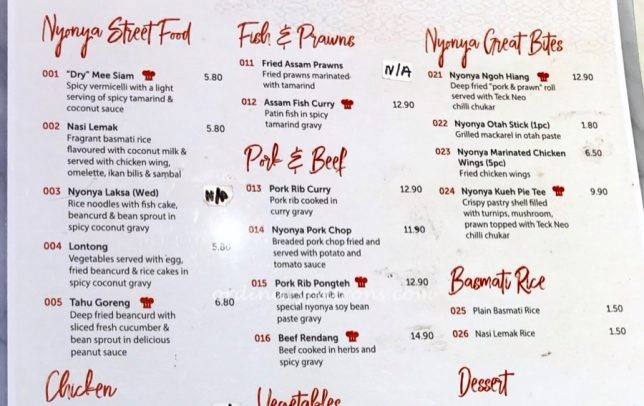 Nyonya Street Food
001 "Dry" Mee Siam 5.80
Spicy vermicelli with a light
serving of spicy tamarind &
coconut sauce
002 Nasi Lemak 5.80
Fragrant basmati rice
flavoured with coconut milk &
served with chicken wing,
omelette, ikan bilis & sambal
003 Nyonya Laksa (Wed) N/A
Rice noodles with fish cake,
beancurd & bean sprout in
spicy coconut gravy
004 Lontong 5.80
Vegetables served with egg,
fried beancurd & rice cakes in
spicy coconut gravy
005 Tahu Goreng 6.80
Deep fried beancurd with
sliced fresh cucumber &
bean sprout in delicious
peanut sauce
Chicken
Fish & Prawns
011 Fried Assam Prawns N/A
Fried prawns marinated
with tamarind
012 Assam Fish Curry 12.90
Patin fish in spicy
tamarind gravy
Pork & Beef
013 Pork Rib Curry 12.90
Pork rib cooked in
curry gravy
014 Nyonya Pork Chop 11.90
Breaded pork chop fried and
served with potato and
tomato sauce
015 Pork Rib Pongteh 12.90
Braised pork rib in
special nyonya soy bean
paste gravy
016 Beef Rendang 14.90
Beef cooked in herbs and
spicy gravy
Vegetables
Nyonya Great Bites
021 Nyonya Ngoh Hiang 12.90
Deep fried "pork & prawn" roll
served with Teck Neo
chilli chukar
022 Nyonya Otah Stick (1pc) 1.80
Grilled mackarel in otah paste
023 Nyonya Marinated Chicken 6.50
Wings (5pc)
Fried chicken wings
024 Nyonya Kueh Pie Tee 9.90
Crispy pastry shell filled
with turnips, mushroom,
prawn topped with Teck Neo
chilli chukar
Basmati Rice
025 Plain Basmati Rice 1.50
026 Nasi Lemak Rice 1.50
Dessert